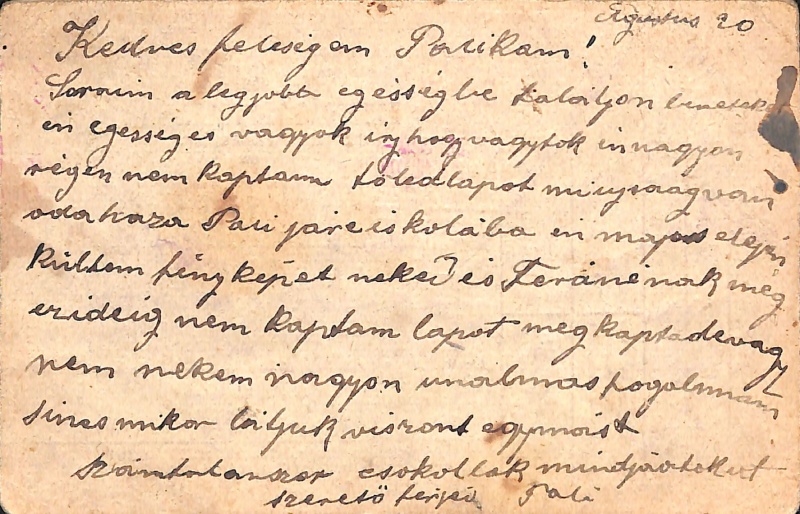 Agustus 20
Kedves feleségem Palikám!
Soraim a legjobb egésségbe találjon beneteket
én egésséges vagyok irj hogy vagytok én nagyon
régen nem kaptam töled lapot mi ujsaag van
oda haza Pali jár e iskolába én elején
küldtem fényképet neked és nak még
ezideig nem kaptam lapot meg kaptad e vagy
nem nekem nagyon unalmas fogalmam
sincs mikor látjuk viszont egymást
számtalanszor csokollak mindjáatokat
szeretö férjed Pali